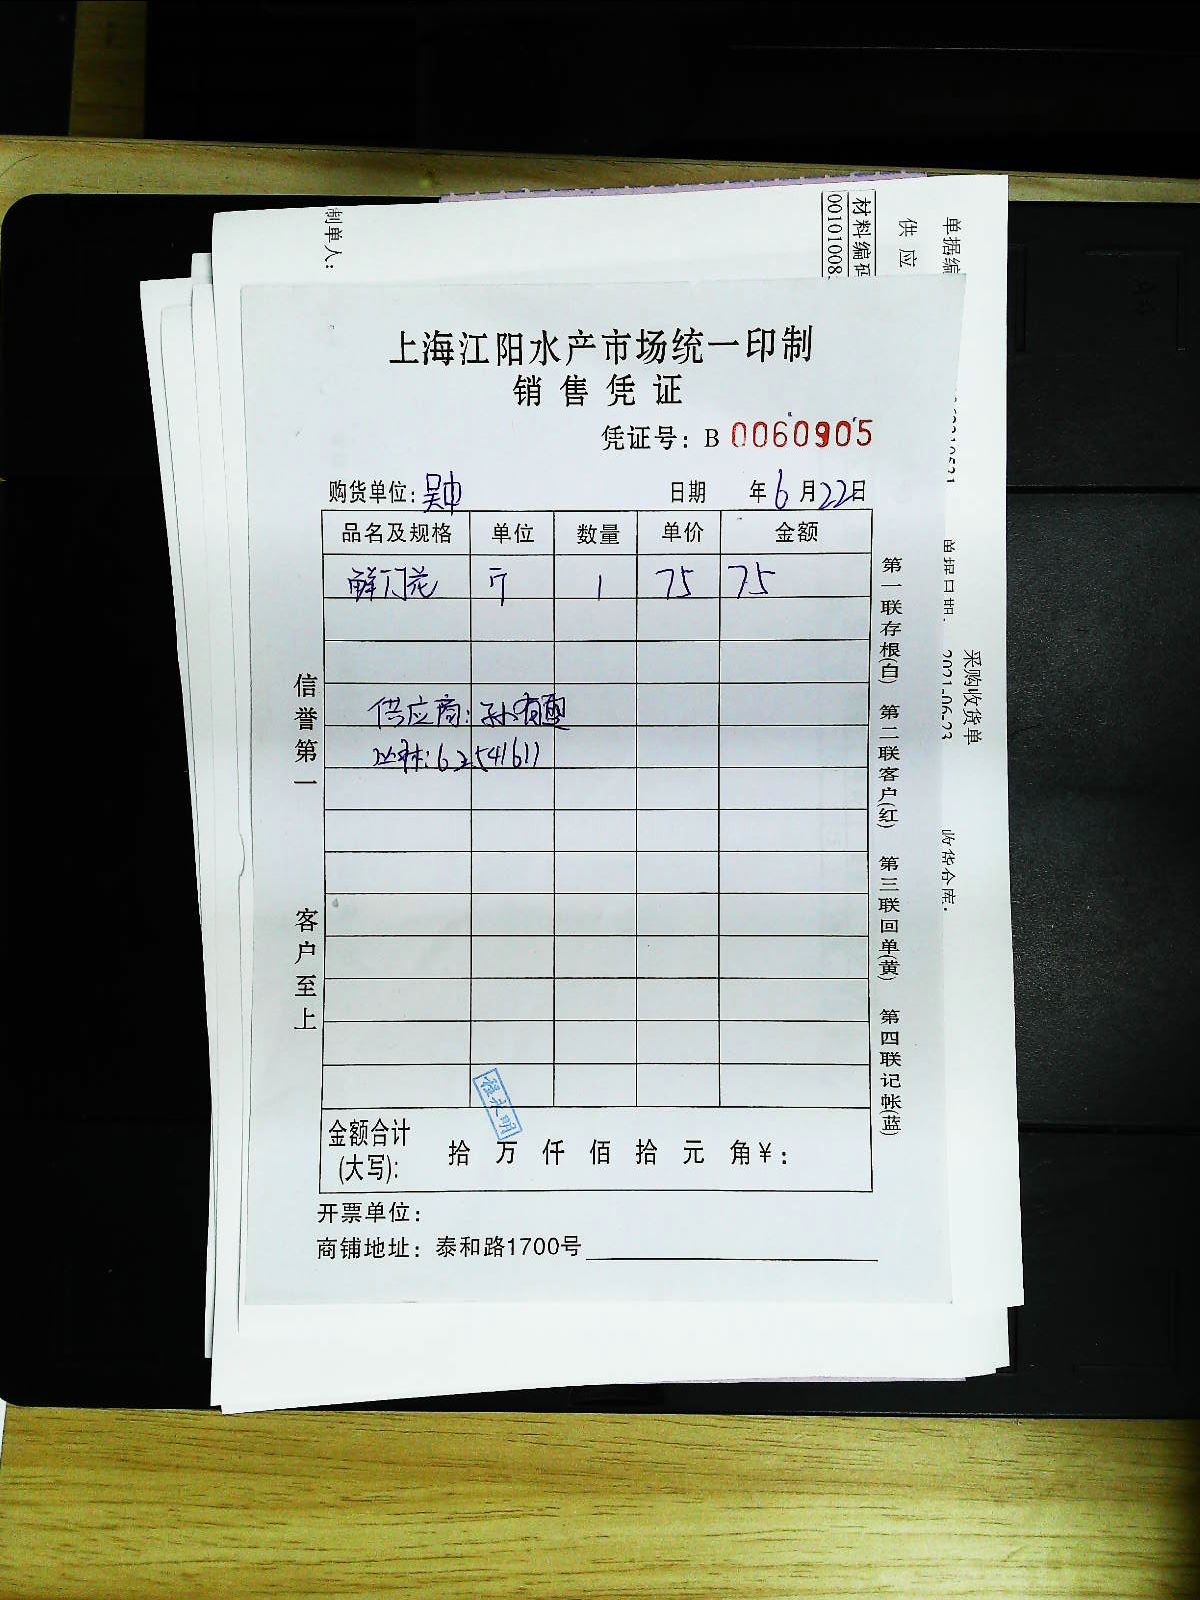 制单人:
材料编码
00101008
供应
单据编
上海江阳水产市场统一印制
销售凭证
凭证号: B 0060905
购货单位: 吴中 日期 年6月22日
品名及规格 单位 数量 单价 金额
鲜 花 1 75 75
供应商: 孙有
62541611
信誉第一
客户至上
第一联存根(白) 第二联客户(红) 第三联回单(黄) 第四联记帐(蓝)
单据日期: 2021-06-23
采购收货单
收货仓库:
程永明
金额合计
(大写): 拾 万 仟 佰 拾 元 角¥:
开票单位:
商铺地址: 泰和路1700号